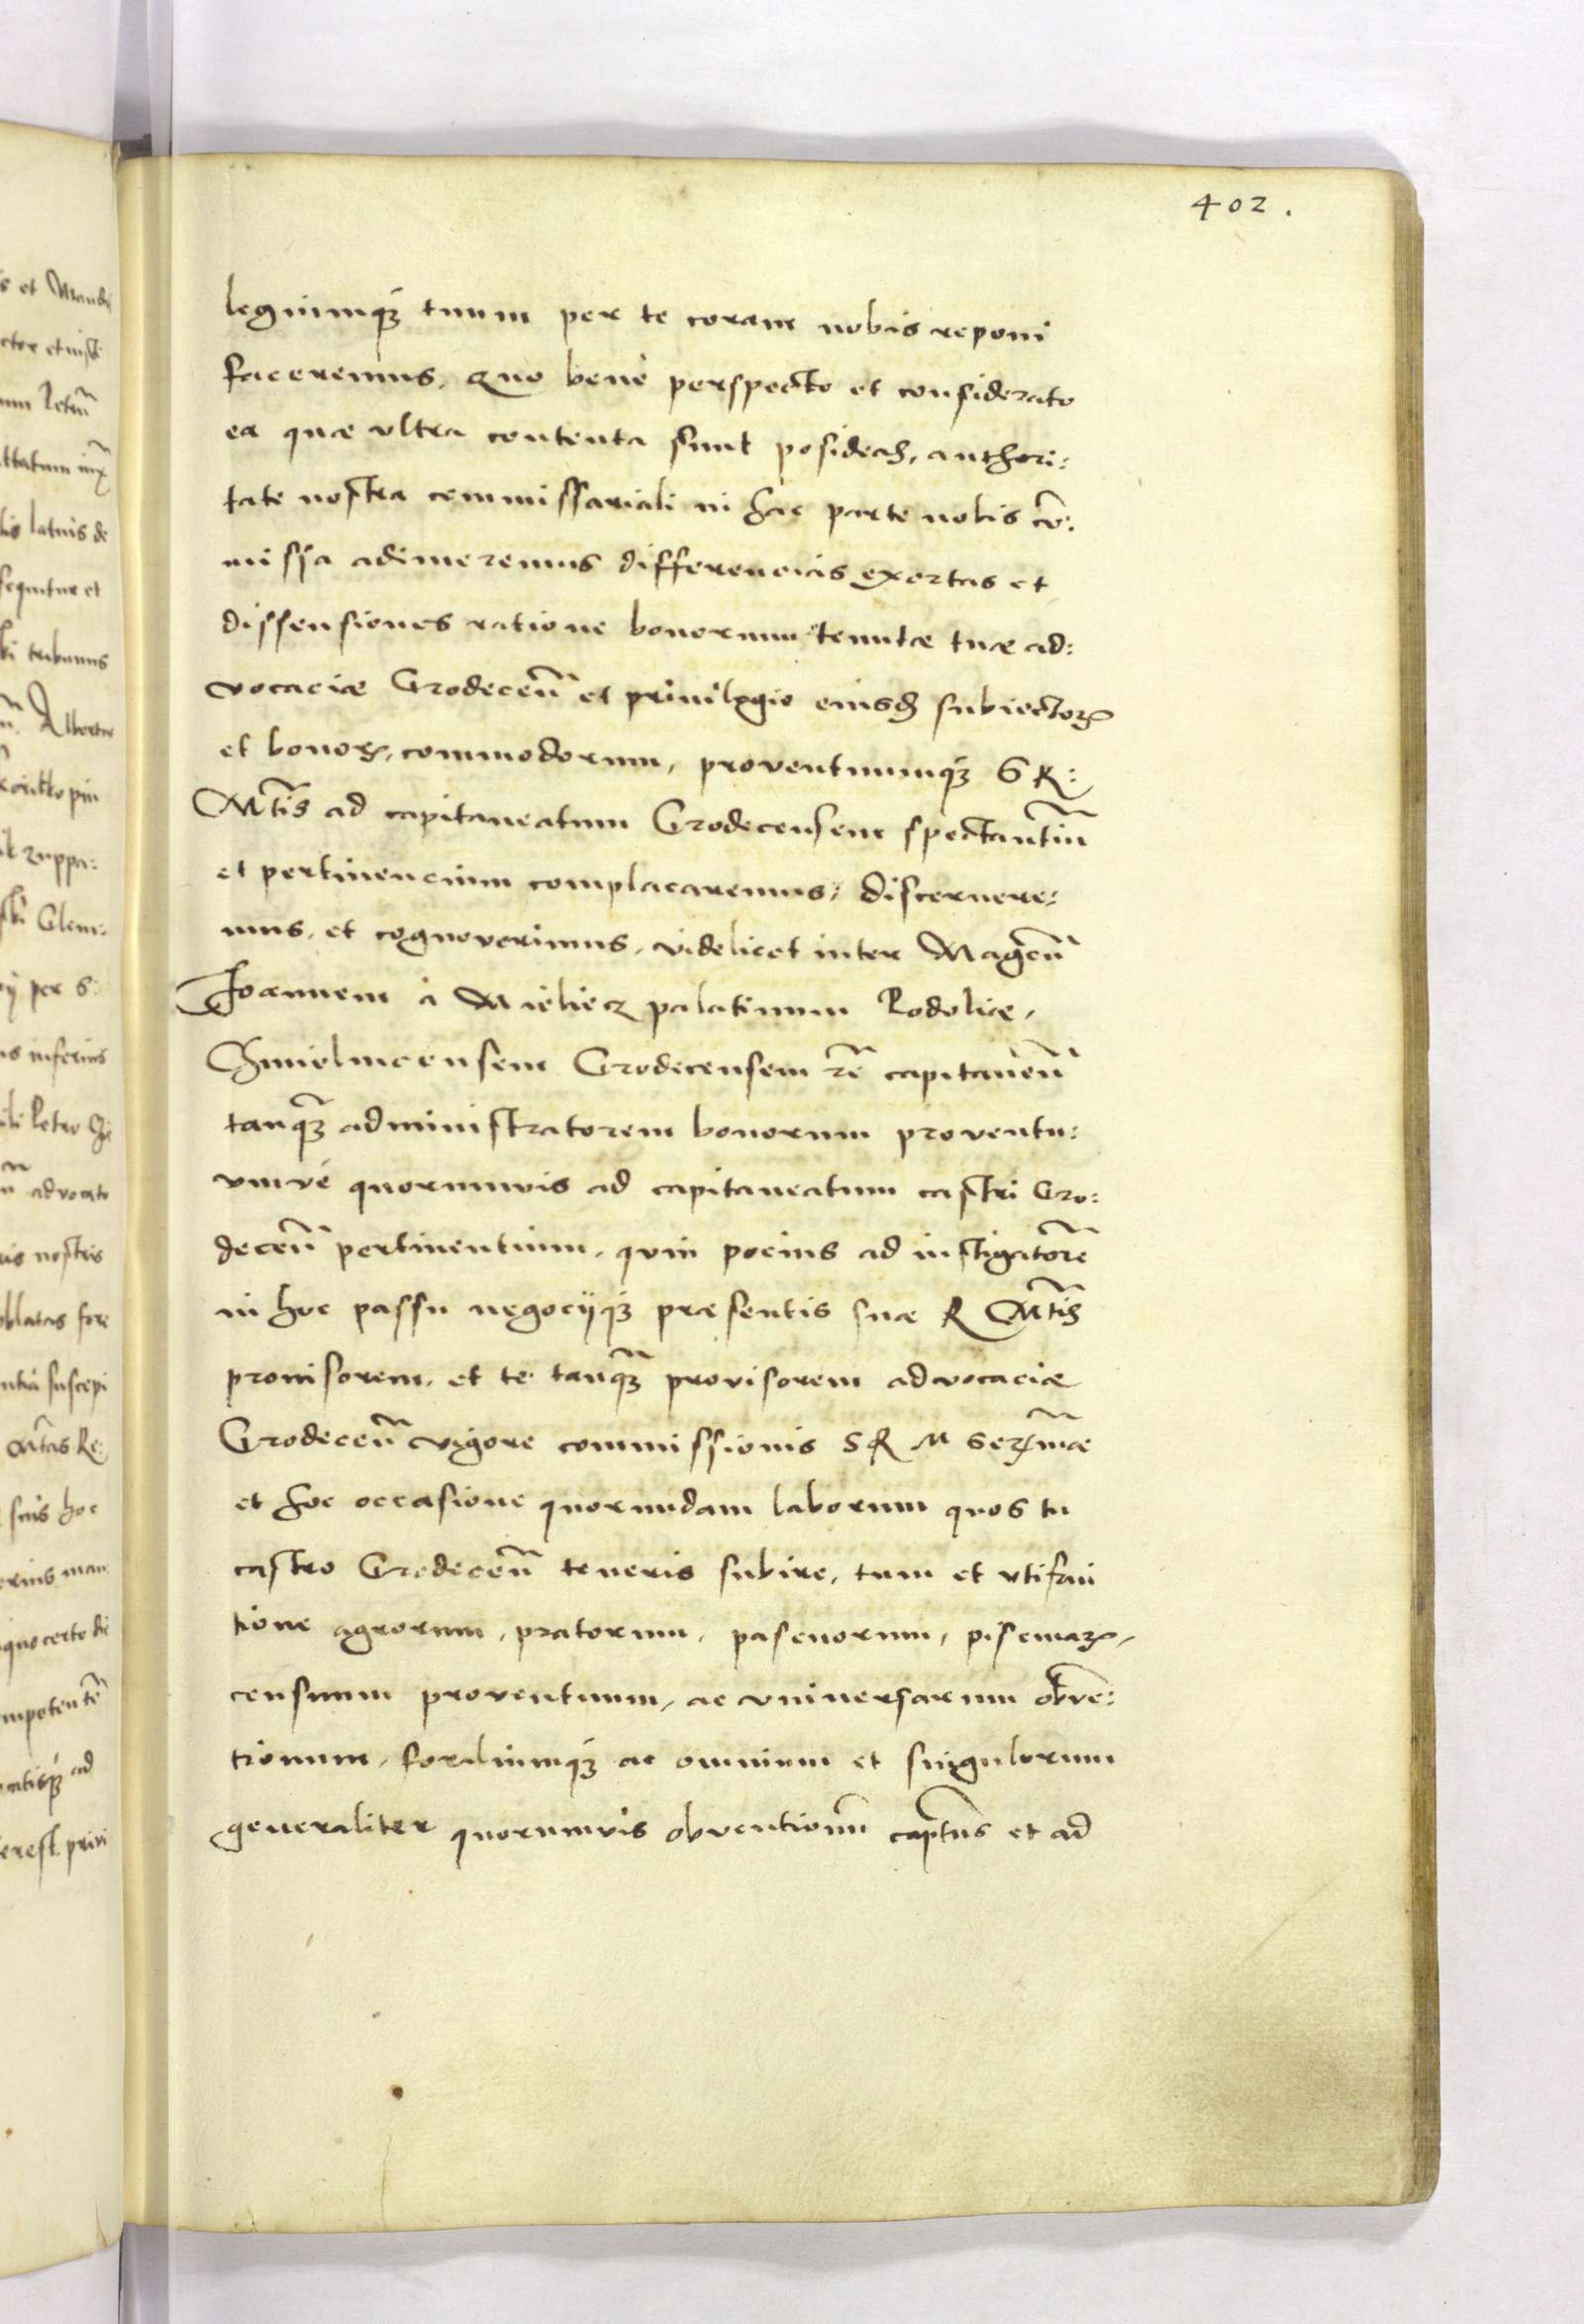 402.
legiumq₃ tuum per te coram nobis reponi
faceremus, Quo benè perspecto et considerato
ea quæ vltra contenta sunt posideas, authori:
tate nostra commissariali in hac parte nobis cō:
missa adimeremus differencias exortas et
dissensiones ratione bonorum tenutæ tuæ ad:
vocaciæ Grodeceñ et privilegio eiusd subiectorꝝ
et bonorꝝ, commodorum, proventuumq₃ S R:
Mtis ad capitaneatum Grodecensem spectantiū
et pertinencium complacaremus, discernere:
mus, et cognoverimus, videlicet inter Magcū
Joannem à Mieliecz palatinum Podoliæ,
Chmielnicensem Grodecensem rē capitaneū
tanq₃ administratorem bonorum proventu:
umvé quorumvis ad capitaneatum castri Gro:
deceñ pertinentium, quin pocius ad instigatorē
in hoc passu negocijq₃ præsentis suæ R Mtis
promisorem, et te tanq₃ provisorem advocaciæ
Grodeceñ vigore commissionis S R M Serēmæ
et hoc occasione quorundam laborum quos tu
castro Grodeceñ teneris subire, tum et vtifrui
tione agrorum, pratorum, pascuorum, piscinarꝝ,
censuum proventuum, ac vniuersarum obven:
tionum, foraliumq₃ ac omnium et singulorum
generaliter quorumvis obventionū captus et ad
s et Mand
lis latuis de
sequitur et
tribunus
Albertus
zuppa:
per S:
us inferius
Petro
advocato
is nostris
oblatas fore
suscepi
suis hoc
quo certo die
erest privi